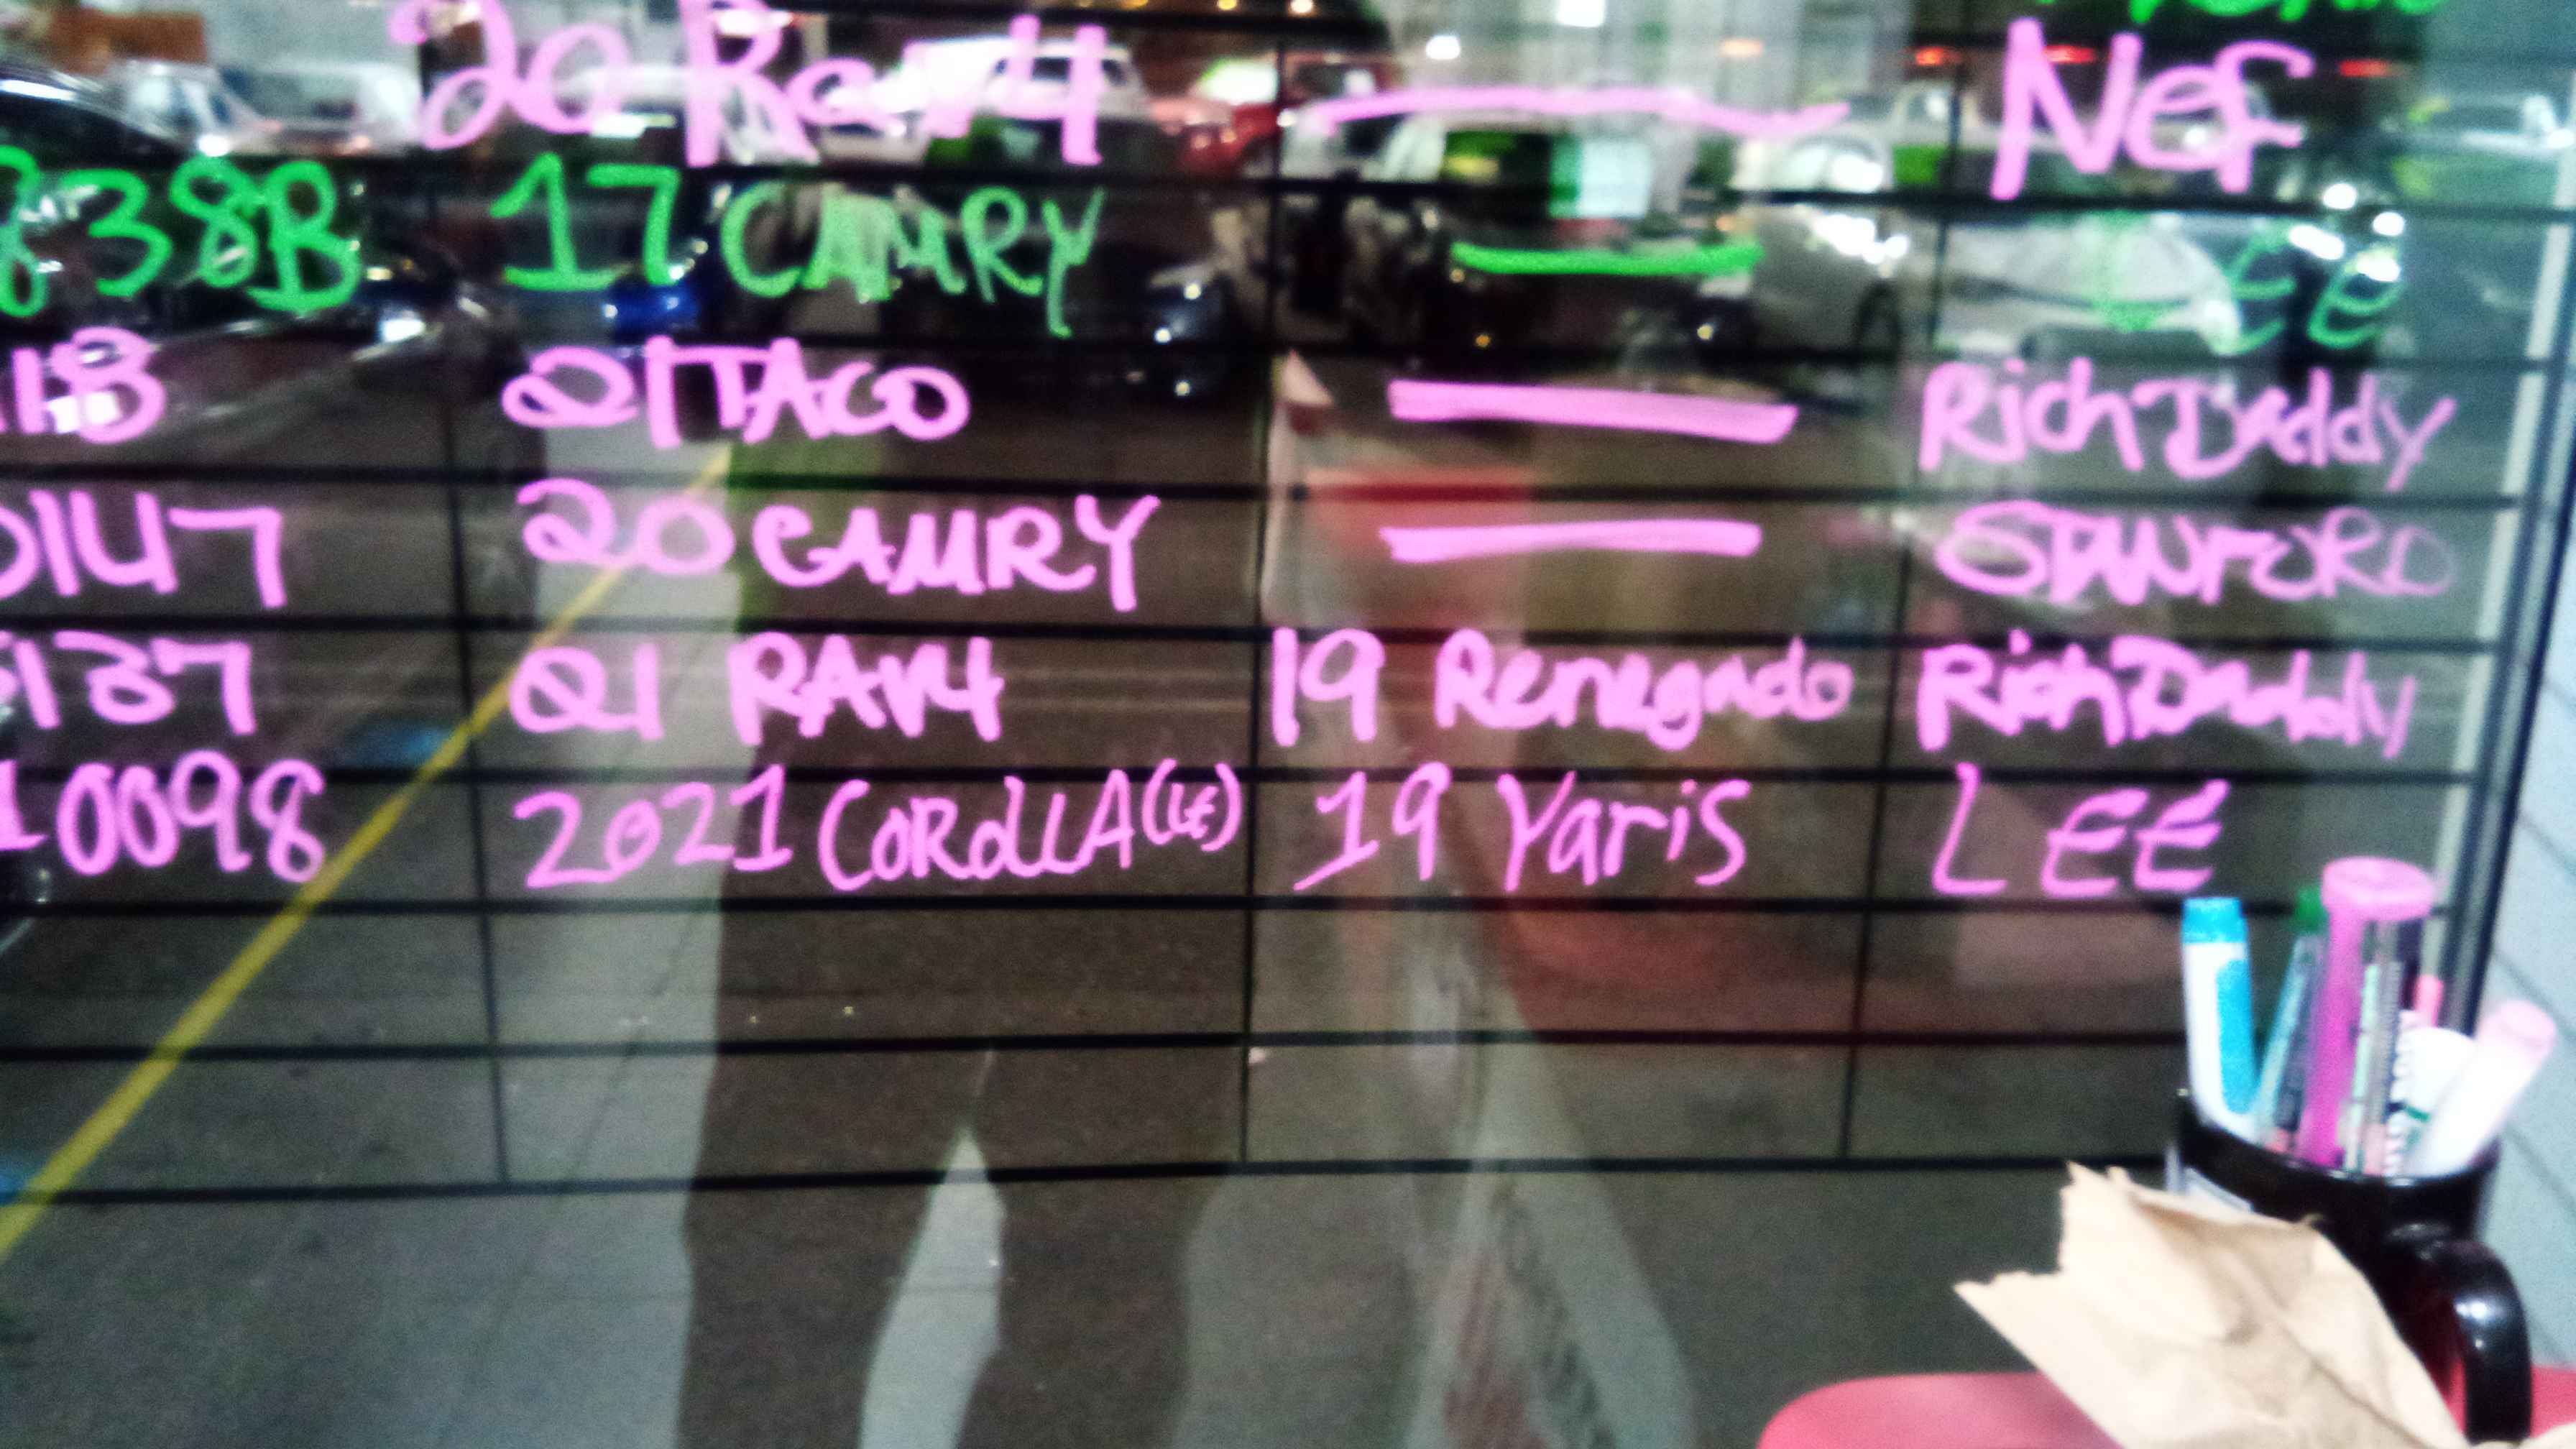 20 Rav4 Nef
838B 17 CAMRY LEE
118 21 TACO Rich Daddy
0147 20 CAMRY STANFORD
137 21 RAV4 19 Renegado Rich Daddy
10098 2021 COROLLA (LE) 19 Yaris LEE